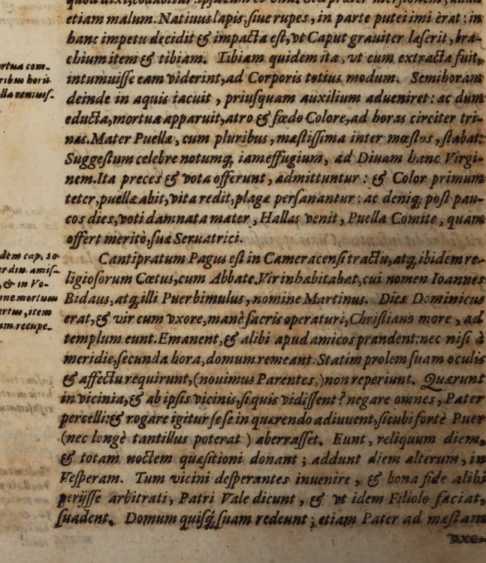 etiam malum. Natiuus lapis, siue rupes, in parte putei imi erat: in
hanc impetu decidit & impacta est, vt Caput grauiter læserit, bra-
chium item & tibiam. Tibiam quidem ita, vt cum extracta fuit,
intumuisse eam viderint, ad Corporis totius modum. Semihoram
deinde in aquis iacuit, priusquam auxilium adueniret: ac dum
educta, mortua apparuit, atro & fœdo Colore, ad horas circiter tri-
nas. Mater Puellæ, cum pluribus, mæstissima inter mœstos, stabat:
Suggestum celebre notumq; iam effugium, ad Diuam hanc Virgi-
nem. Ita preces & vota offerunt, admittuntur: & Color primum
teter, puellæ abit, vita redit, plagæ persanantur: ac deniq; post pau-
cos dies, voti damnata mater, Hallas venit, Puella Comite, quam
offert meritò, suæ Seruatrici.
Cantipratum Pagus est in Cameracensi tractu, atq; ibidem re-
ligiosorum Cœtus, cum Abbate. Vir inhabitabat, cui nomen Ioannes
Bidaus, atq; illi Puer bimulus, nomine Martinus. Dies Dominicus
erat, & vir cum vxore, manè sacris operaturi, Christiano more, ad
templum eunt. Emanent, & alibi apud amicos prandent: nec nisi à
meridie, secunda hora, domum remeant. Statim prolem suam oculis
& affectu requirunt, (nouimus Parentes,) non reperiunt. Quærunt
in vicinia, & ab ipsis vicinis, si quis vidissent? negare omnes, Pater
percelli: & rogare igitur sese in quærendo adiuuent, sicubi fortè Puer
(nec longè tantillus poterat) aberrasset. Eunt, reliquum diem,
& totam noctem quæsitioni donant; addunt diem alterum, in
Vesperam. Tum vicini desperantes inuenire, & bona fide alibi
perijsse arbitrati, Patri Vale dicunt, & vt idem Filiolo faciat,
suadent. Domum quisq; suam redeunt; etiam Pater ad mæstam
ortua com-
ribus horis
lla reuiuis-
dem cap. 10
er diu amis-
, & in Ve-
ne mortuum
ertus, item
um recupe-